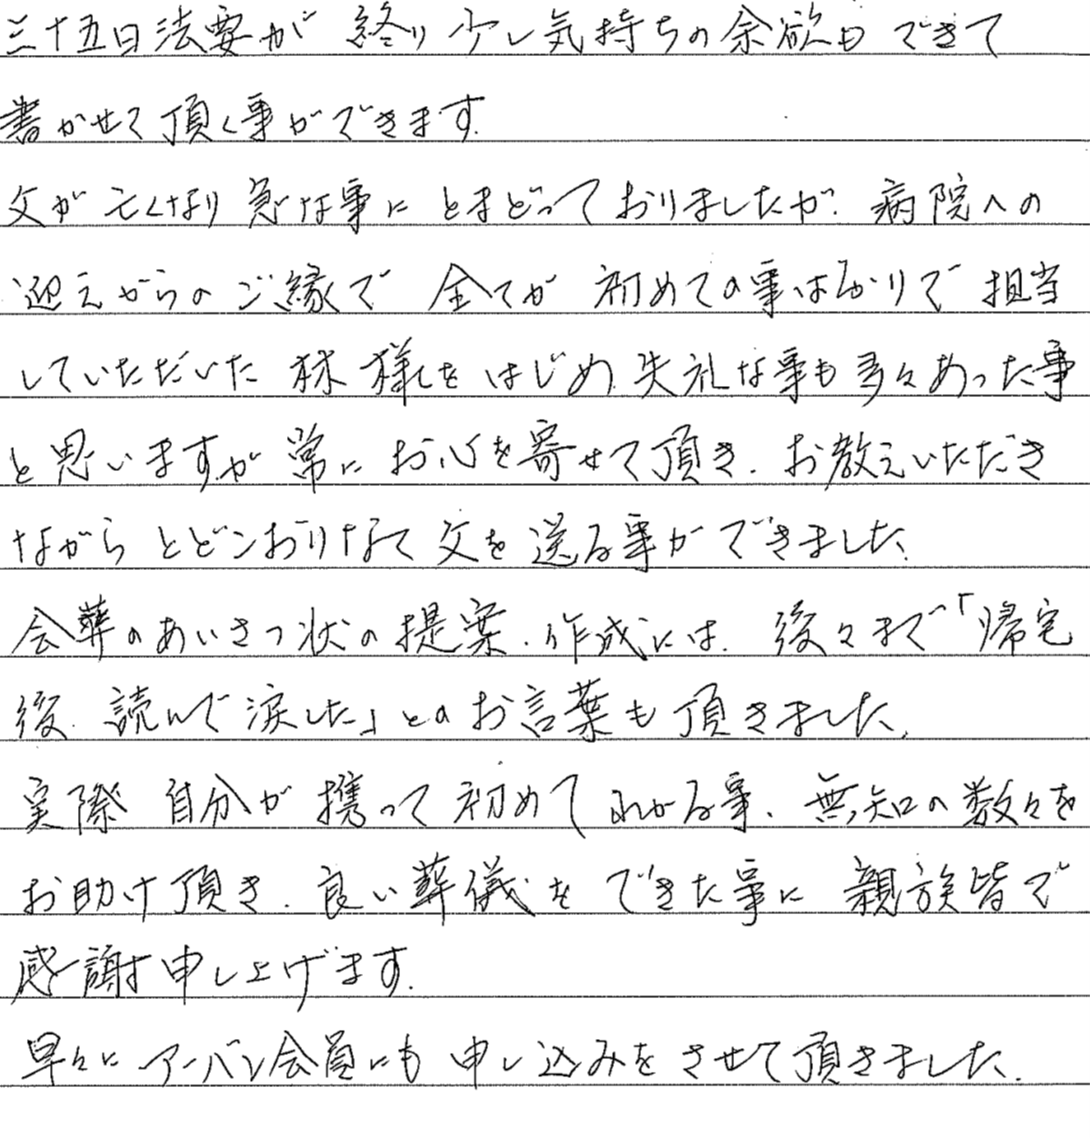 三十五日法要が 終り 少し気持ちの余欲も できて
書かせて頂く事ができます.
父が亡くなり 急な事に とまどっておりましたが、病院への
迎えからの ご縁で 全てが 初めての事ばかりで 担当
していただいた 林様をはじめ、失礼な事も多々あった事
と思いますが 常に お心を寄せて頂き、お教えいただき
ながら とどこおりなくて 父を 送る事ができました、
会葬のあいさつ状の提案、作成には、後々まで「帰宅
後、読んで涙した」とのお言葉も頂きました、
実際 自分が 携って初めて わかる事、無知の数々を
お助け頂き、良い葬儀を できた事に 親族皆で
感謝申し上げます.
早々に アーバン会員にも 申し込みを させて頂きました.